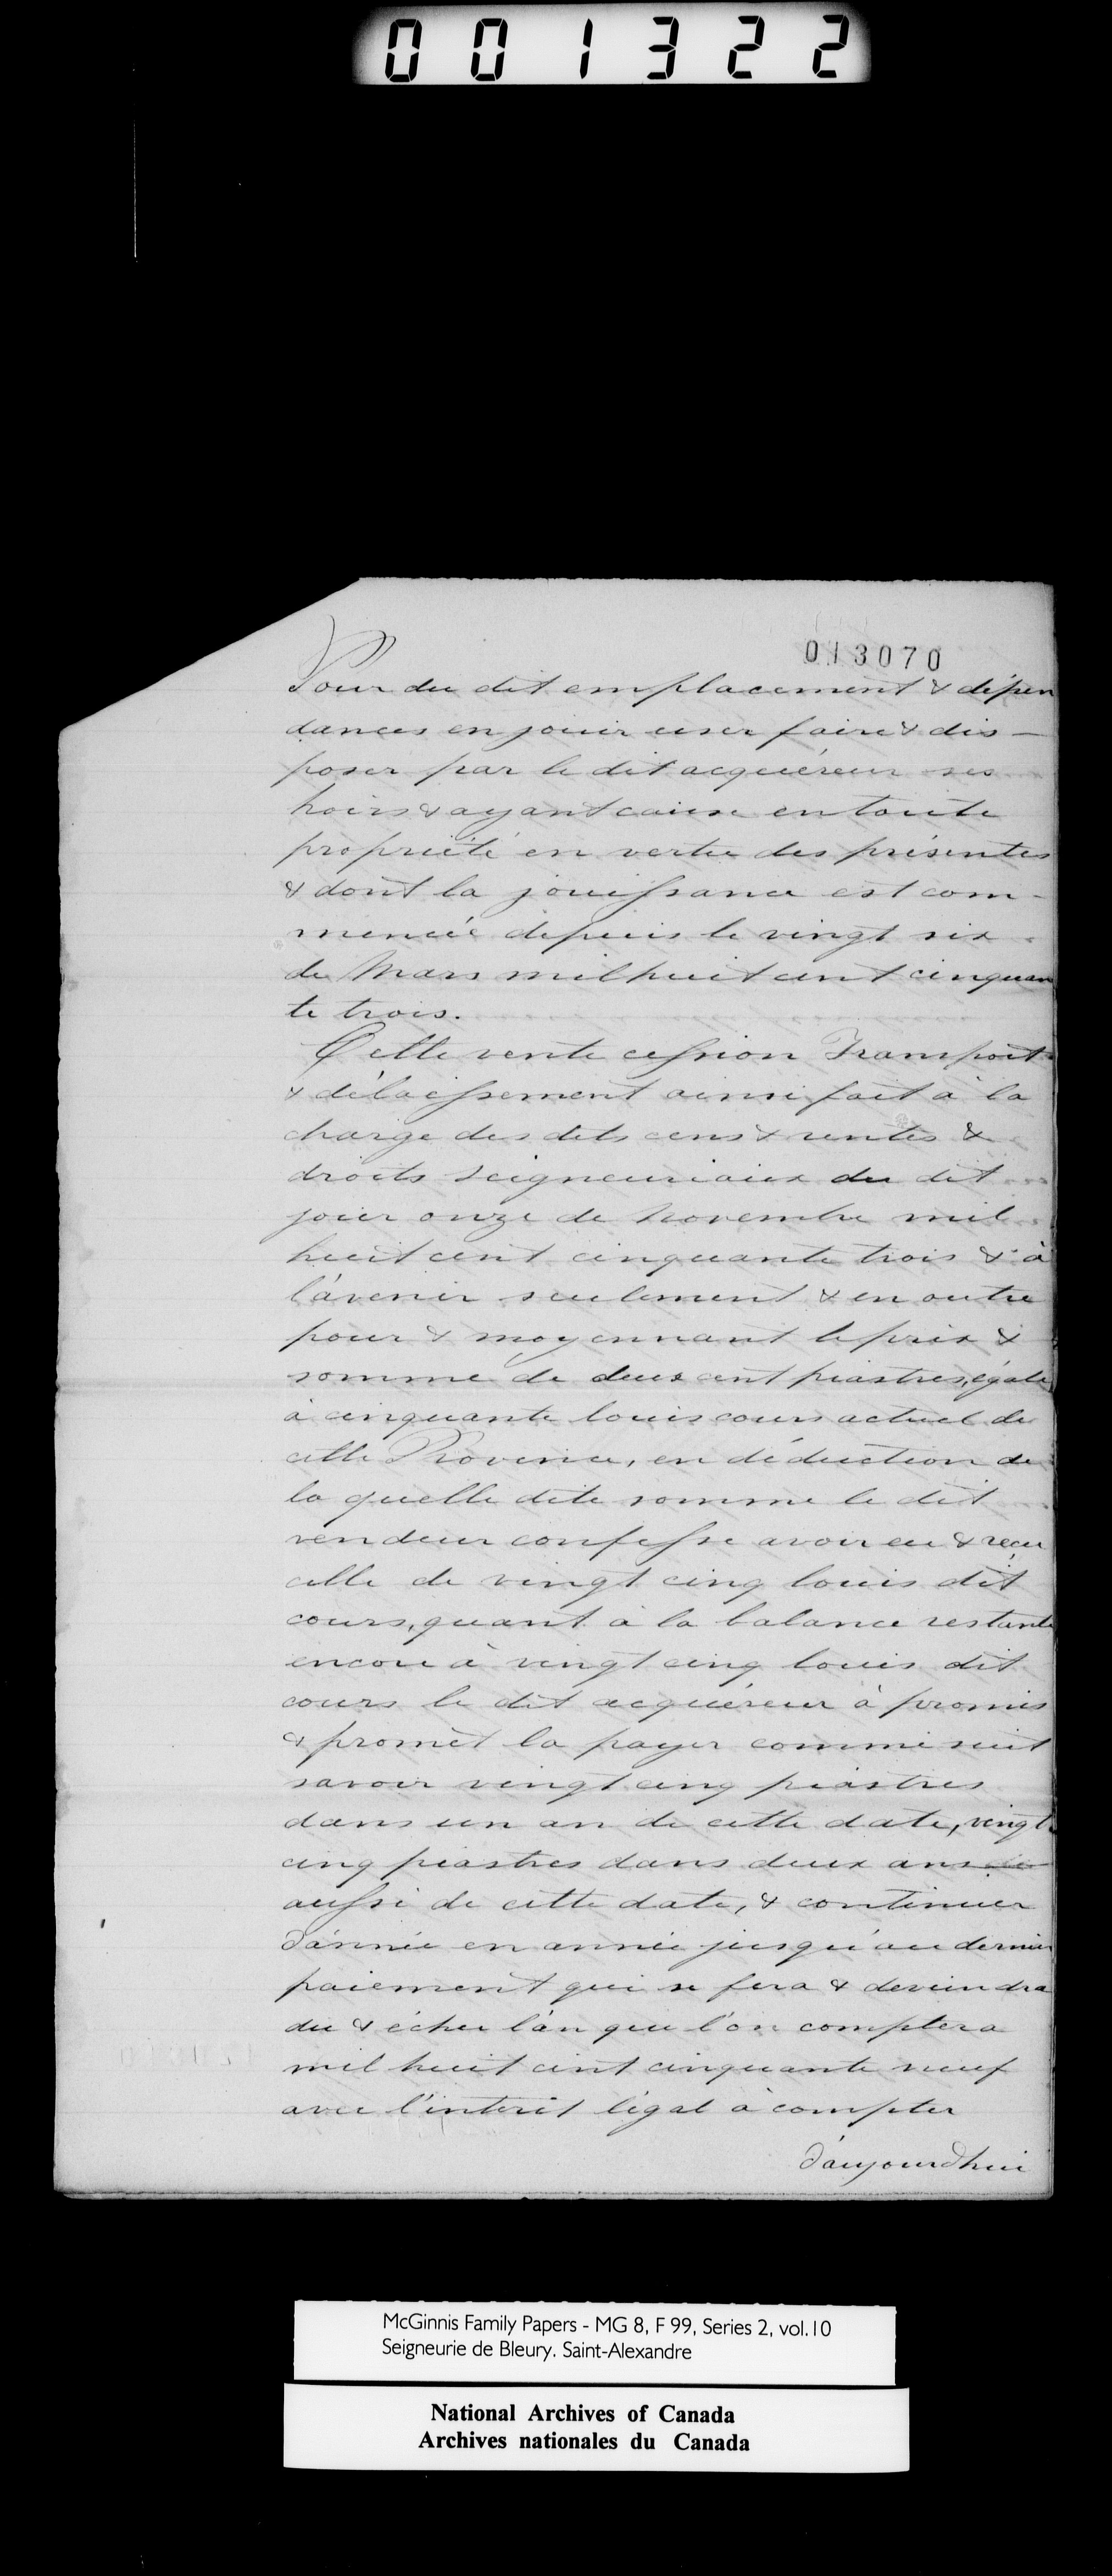 001322
013070
Pour du dit emplacement & dépen
dances en jouir user faire & dis-
poser par le dit acquéreur ses
hoirs & ayant cause en toute
propriété en vertu des présentes
& dont la jouissance est com-
mencée depuis le vingt six
de Mars mil huit cent cinquan
te trois.
Cette vente cession Transport
& délaissement ainsi fait à la
charge des dits cens & rentes &
droits seigneuriaux du dit
jour onze de Novembre mil
huit cent cinquante trois & à
l'avenir seulement & en outre
pour & moyennant le prix &
somme de deux cent piastres, égale
à cinquante louis cours actuel de
cette Province, en déduction de
la quelle dite somme le dit
vendeur confesse avoir eu & reçu
celle de vingt cinq louis dit
cours, quant à la balance restante
encore à vingt cinq louis dit
cours le dit acquéreur à promis
& promèt la payer comme suit
savoir vingt cinq piastres
dans un an de cette date, vingt
cinq piastres dans deux ans
aussi de cette date, & continuer
d'année en année jusqu'au dernier
paiement qui se fera & deviendra
du & échu l'an que l'on comptera
mil huit cent cinquante neuf
avec l'intérêt légal à compter
d'aujourdhui
McGinnis Family Papers - MG 8, F 99, Series 2, vol.10
Seigneurie de Bleury. Saint-Alexandre
National Archives of Canada
Archives nationales du Canada